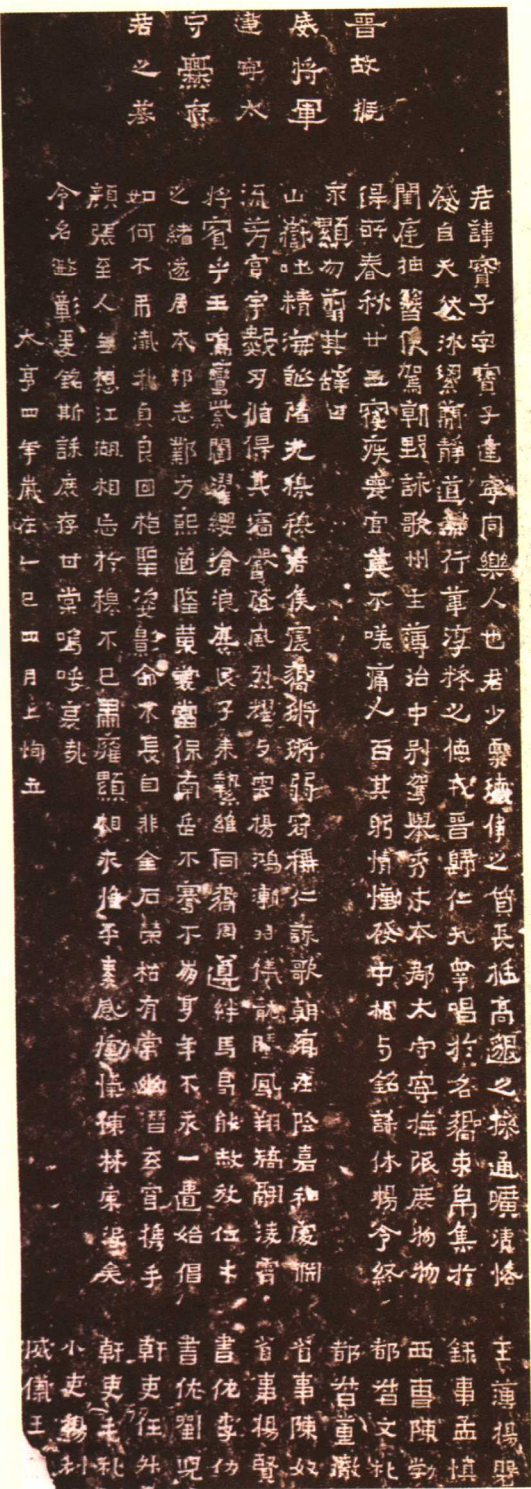 晋故振
威将軍
建寧太
守爨府
君之墓
君諱寶子字寶子建寧同樂人也君少稟瓌偉之質長挺高邈之操通曠清恪
發自天然冰絜簡静道兼行葦淳粹之德戎晋歸仁九皐唱於名嚮束帛集於
閨庭抽簪俟駕朝野詠歌州主薄治中别駕舉秀才本郡太守寧撫氓庶物物
得所春秋廿五寢疾喪官莫不嗟痛人百其躬情慟發中相与銘誄休揚令終
永顯勿翦其辞曰
山嶽吐精海誕陼光穆穆君侯震嚮鏘鏘弱冠稱仁詠歌朝鄉在陰嘉和處淵
流芳宫宇數仞循得其墻馨隨風烈耀与雲揚鴻漸羽儀龍騰鳳翔矯翮凌霄
將賓乎王鳴鸞紫闥濯纓滄浪庶民子來縶維同嚮周遵絆馬曷能赦放位才
之緒遂居本邦志鄴方熙道隆黄裳當保南岳不騫不崩享年不永一匱始倡
如何不弔殲我貞良回枹聖姿影命不長自非金石榮枯有常幽潛玄宫攜手
顔張至人無想江湖相忘於穆不已肅雍顯相永惟平素感慟忾慷林宗没矣
令名遐彰爰銘斯誄庶存甘棠嗚呼哀哉
太亨四年歲在乙巳四月上恂立
主薄楊磐
録事孟慎
西曹陳勃
都督文礼
都督董徹
省事陳奴
省事楊賢
書佐李仂
書佐劉兒
幹吏任升
幹吏毛礼
小吏楊利
威儀王